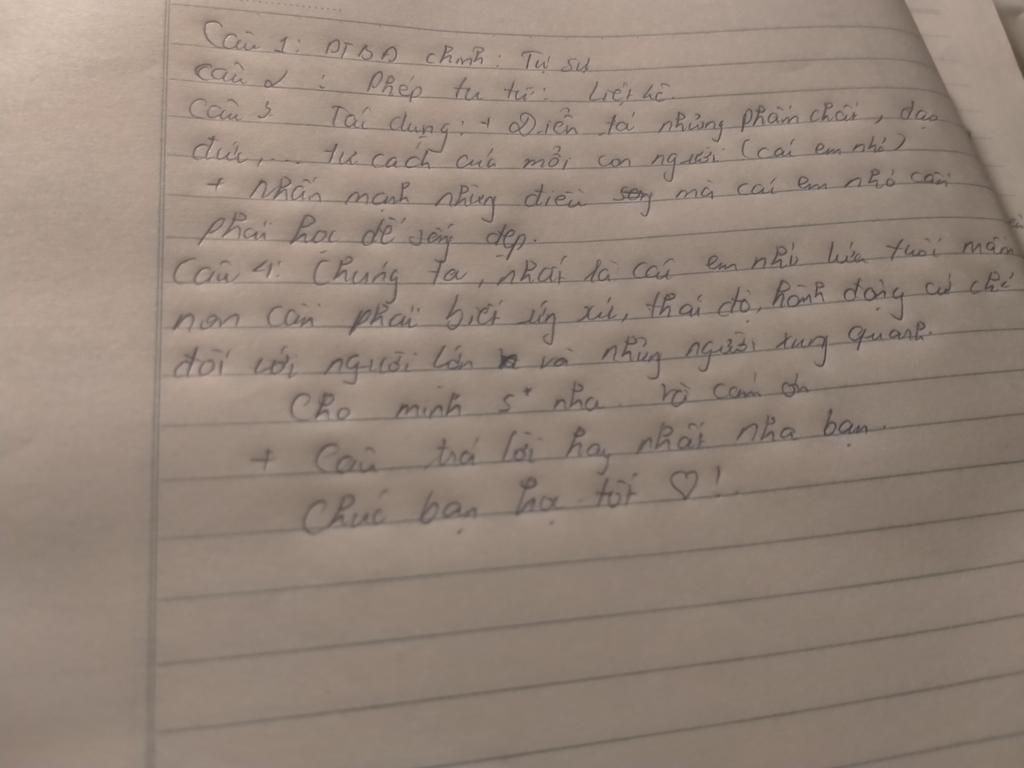 Câu 1: PTBĐ chính: Tự sự
Câu 2 : Phép tu từ: Liệt kê
Câu 3 Tác dụng: + Diễn tả những phẩm chất, đạo
đức,... tư cách của mỗi con người (các em nhỏ)
+ nhấn mạnh những điều mà các em nhỏ cần
phải học để sống đẹp.
Câu 4: Chúng ta, nhất là các em nhỏ lứa tuổi mầm
non cần phải biết ứng xử, thái độ, hành động cử chỉ
đối với người lớn và những người xung quanh.
Cho mình 5* nha và cảm ơn
+ Câu trả lời hay nhất nha bạn.
Chúc bạn học tốt ♡!